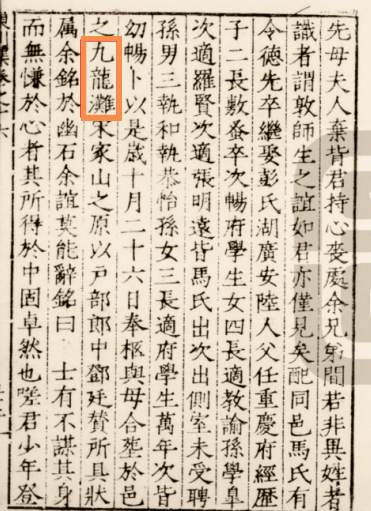 先母夫人棄背君持心喪處余兄弟間若非異姓者
識者謂敦師生之誼如君亦僅見矣配同邑馬氏有
令德先卒繼娶彭氏湖廣安陸人父任重慶府經歷
子二長敷蚤卒次暢府學生女四長適教諭孫學皐
次適羅賢次適張明遠皆馬氏出次出側室未受聘
孫男三執和執恭怡孫女三長適府學生萬年次皆
幼暢卜以是歲十月二十六日奉柩與母合塟於邑
之九龍灘宋家山之原以戸部郎中鄧廷賛所具狀
属余銘於幽石余誼莫能辭銘曰　士有不謀其身
而無慊於心者其所得於中固卓然也嗟君少年登